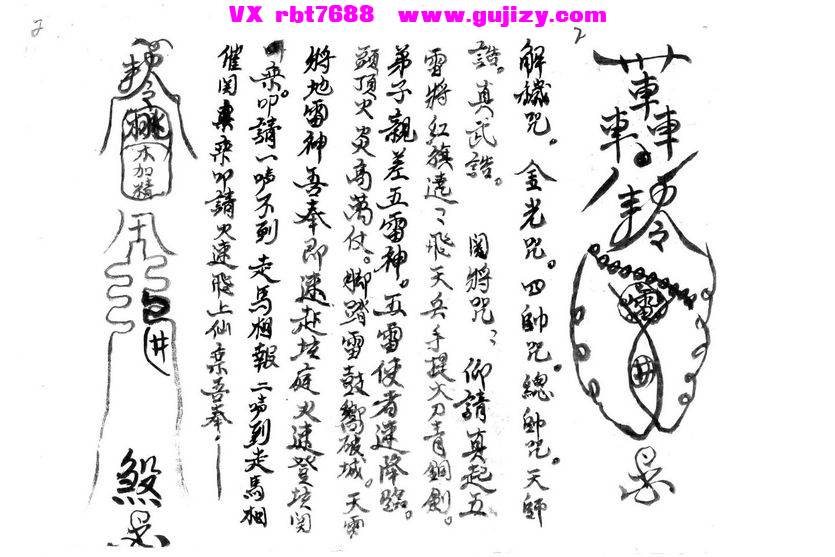 VX rbt7688 www.gujizy.com
2
解穢咒。金光咒。四帥咒。總帥咒。天師
誥。真武誥。 関將咒：仰請真起五
雷將紅旗遠：飛天兵手提大刀青銅劍。
弟子親差五雷神。五雷使者速降臨。
頭頂火炎高萬仗。脚踏雷鼓响破城。天雷
將地雷神吾奉即速赴坛庭火速登坛関
乘。叩請一声不到走馬相報二声到走馬相
催関 乘叩請火速飛上仙 吾奉
2
木加精
井
煞